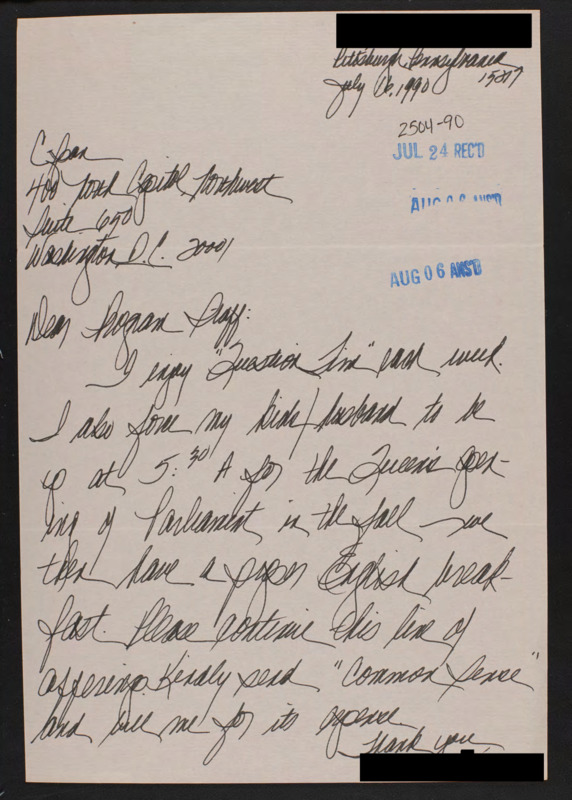 Pittsburgh, Pennsylvania
15217
July 16, 1990
2504-90
JUL 24 REC'D
AUG 06 ANS'D
C Span
400 North Capitol, Northwest
Suite 650
Washington, D.C. 20001
AUG 06 ANS'D
Dear Program Staff:
I enjoy "Question Time" each week.
I also force my kids/husband to be
up at 5:30 A for the Queen's open-
ing of Parliament in the fall - we
then have a proper English break-
fast. Please continue this line of
offering. Kindly send "Common Sense"
and bill me for its expense.
Thank you,